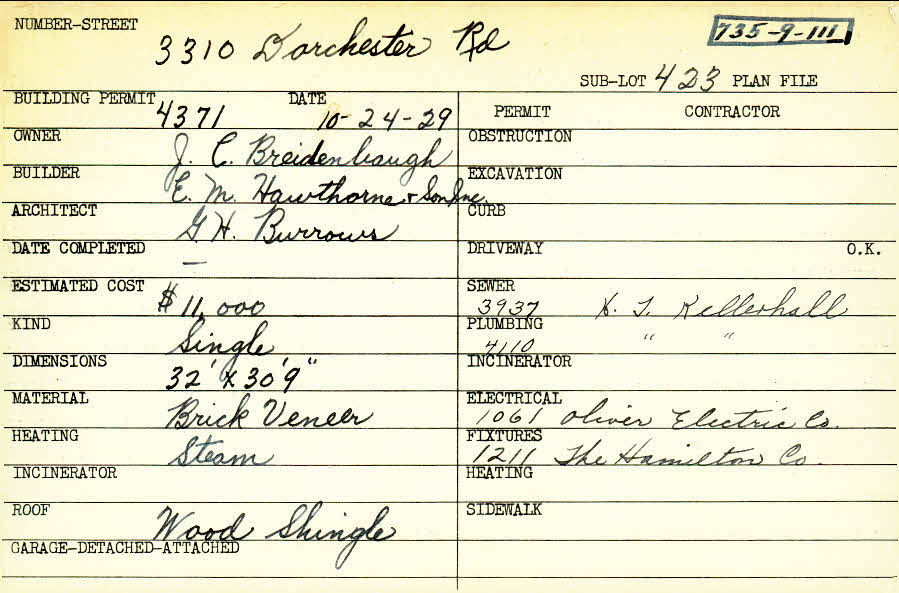 NUMBER-STREET 3310 Dorchester Rd 735-9-111
SUB-LOT 423 PLAN FILE
BUILDING PERMIT 4371 DATE 10-24-29
PERMIT CONTRACTOR
OWNER J. C. Breidenbaugh
OBSTRUCTION
BUILDER E. M. Hawthorne & Son Inc.
EXCAVATION
ARCHITECT G. H. Burrows
CURB
DATE COMPLETED —
DRIVEWAY O.K.
ESTIMATED COST $11,000
SEWER 3937
KIND Single
PLUMBING 4110 " "
DIMENSIONS 32' x 30'9"
INCINERATOR
MATERIAL Brick Veneer
ELECTRICAL 1061 Oliver Electric Co.
HEATING Steam
FIXTURES 1211 The Hamilton Co.
INCINERATOR
HEATING
ROOF Wood Shingle
SIDEWALK
GARAGE-DETACHED-ATTACHED